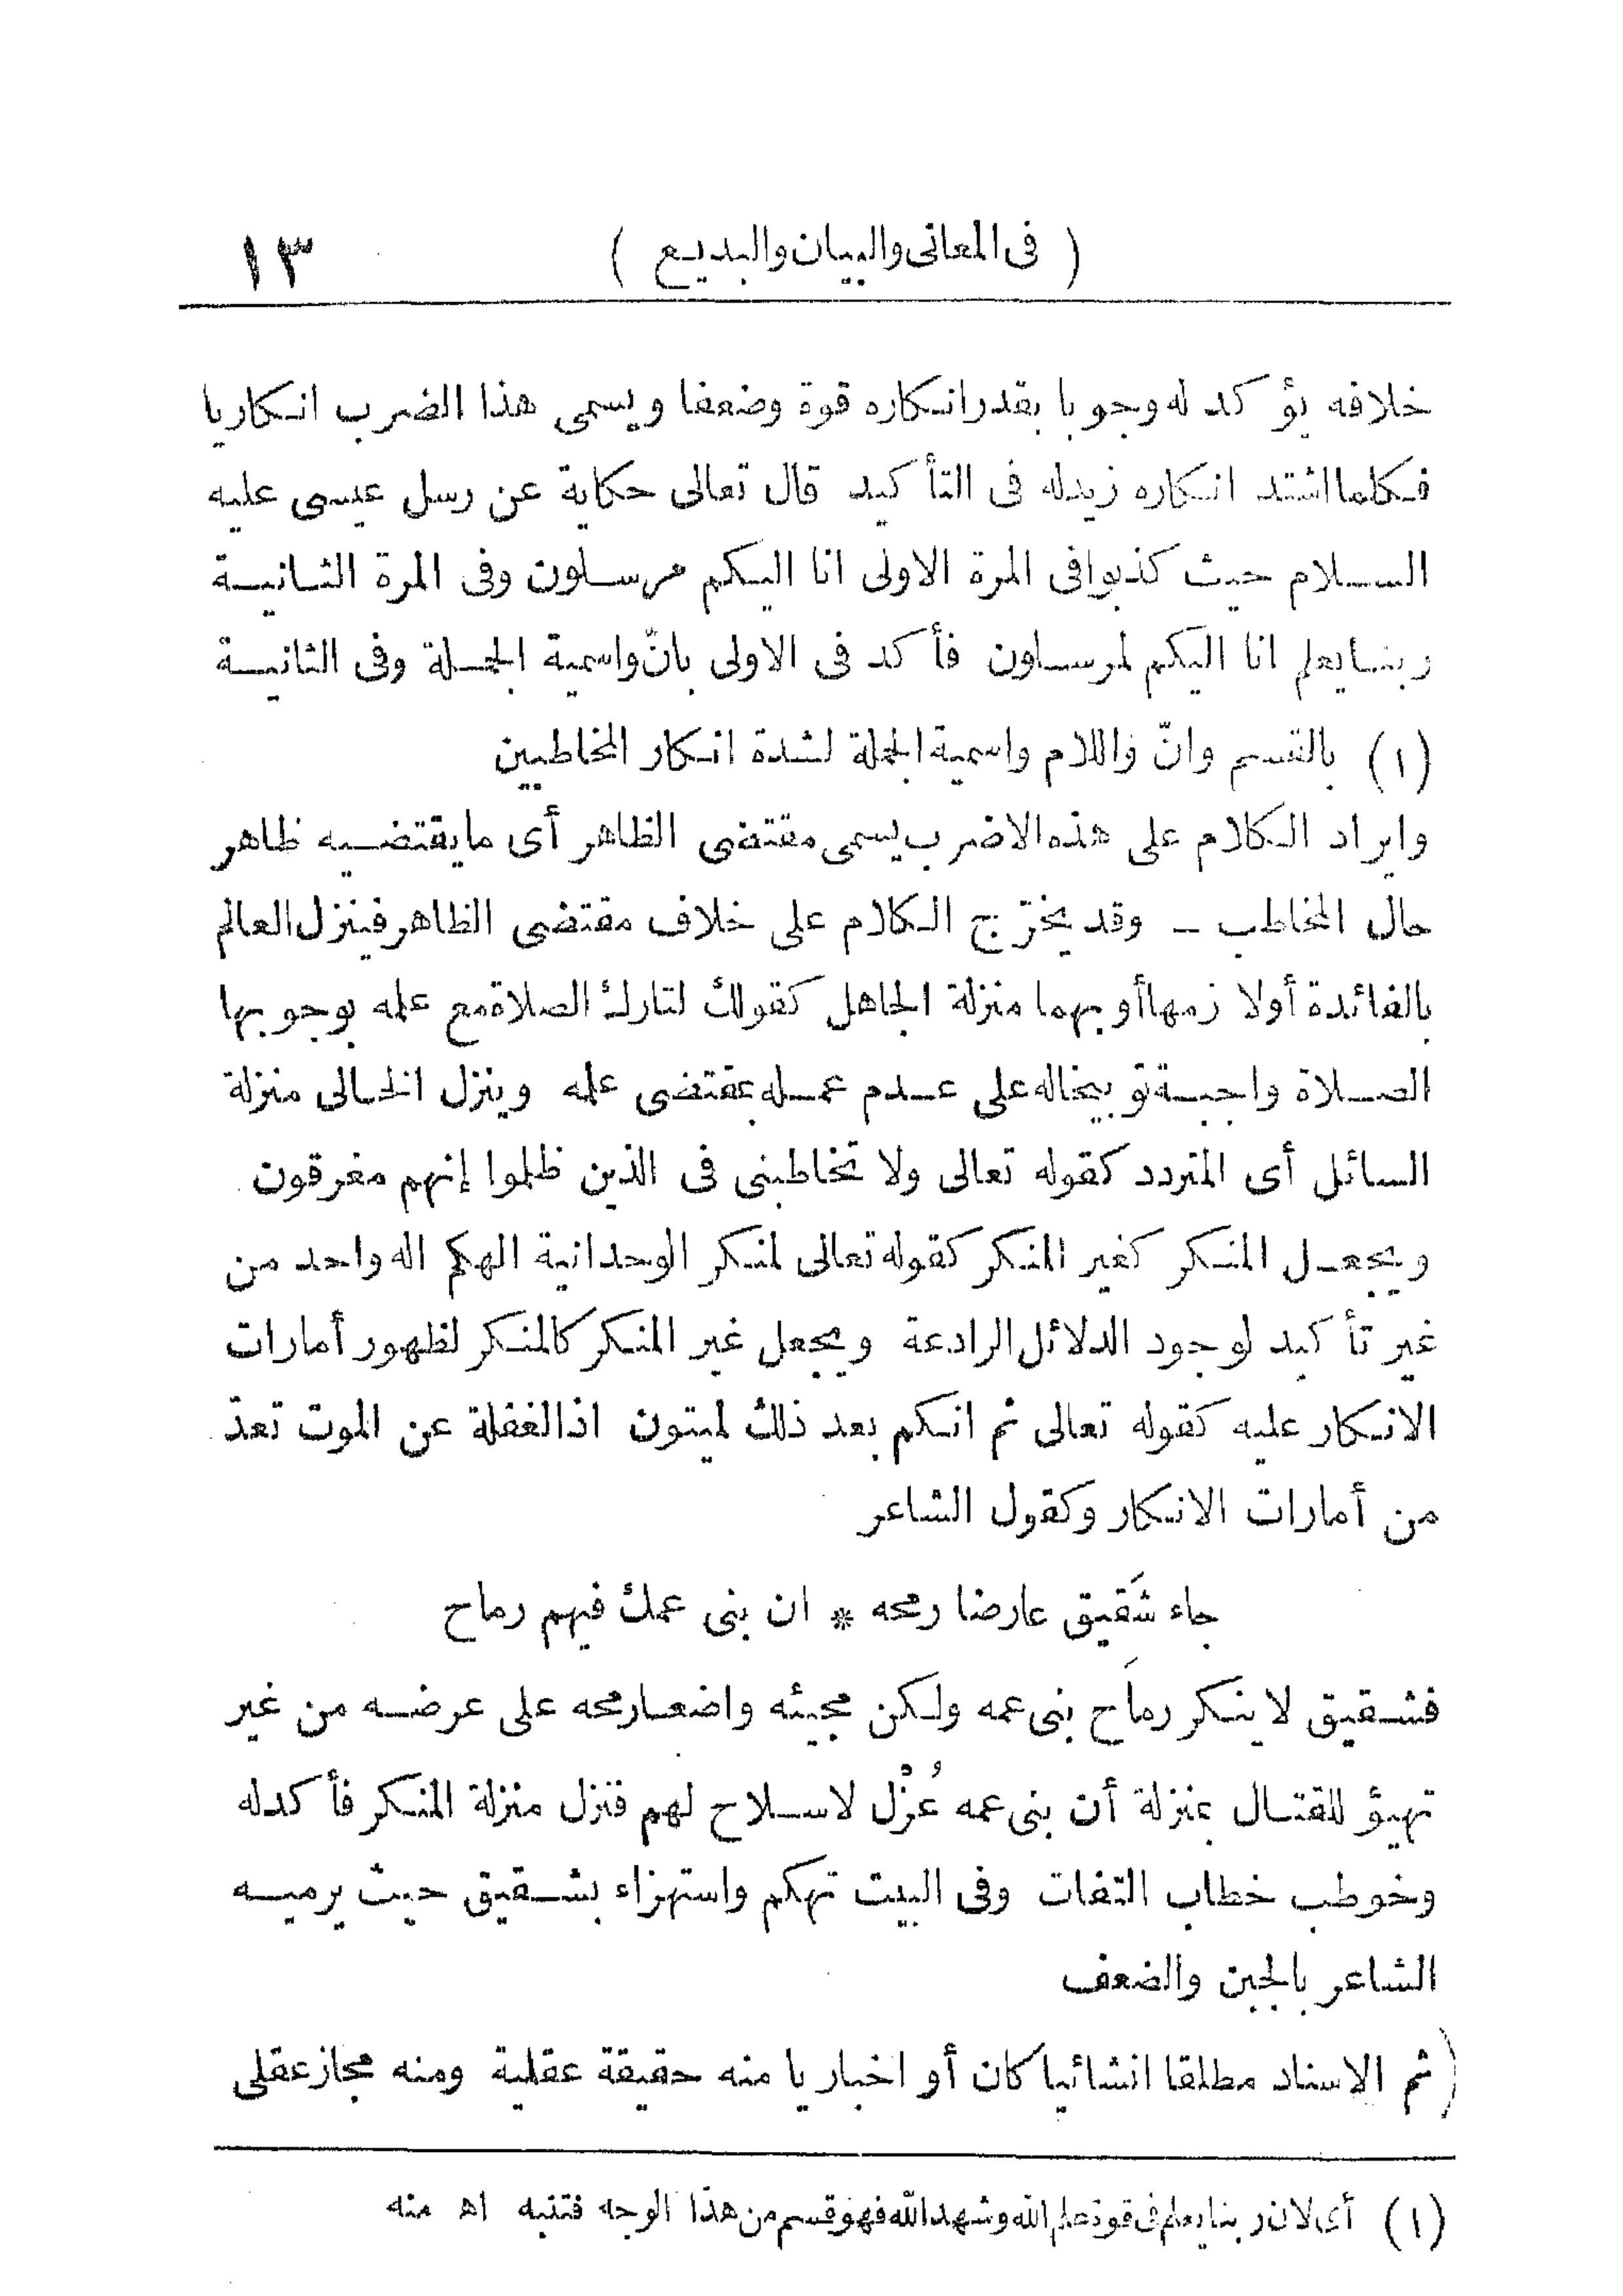 ( فى المعانى والبيان والبديع ) ١٣
خلافه يؤكد له وجوبا بقدر انكاره قوة وضعفا ويسمى هذا الضرب انكاريا
فكلما اشتد انكاره زيد له فى التأكيد قال تعالى حكاية عن رسل عيسى عليه
السلام حيث كذبوا فى المرة الاولى انا اليكم مرسلون وفى المرة الثانية
ربنا يعلم انا اليكم لمرسلون فأكد فى الاولى بانّ واسمية الجملة وفى الثانية
(١) بالقسم وانّ واللام واسمية الجملة لشدة انكار المخاطبين
وايراد الكلام على هذه الاضرب يسمى مقتضى الظاهر أى ما يقتضيه ظاهر
حال المخاطب ــ وقد يخرّج الكلام على خلاف مقتضى الظاهر فينزل العالم
بالفائدة أولازمها أو بهما منزلة الجاهل كقولك لتارك الصلاة مع علمه بوجوبها
الصلاة واجبة توبيخا له على عدم عمله بمقتضى علمه وينزل الخالى منزلة
السائل أى المتردد كقوله تعالى ولا تخاطبنى فى الذين ظلموا إنهم مغرقون
ويجعل المنكر كغير المنكر كقوله تعالى لمنكر الوحدانية الهكم اله واحد من
غير تأكيد لوجود الدلائل الرادعة ويجعل غير المنكر كالمنكر لظهور أمارات
الانكار عليه كقوله تعالى ثم انكم بعد ذلك لميتون اذ الغفلة عن الموت تعدّ
من أمارات الانكار وكقول الشاعر
جاء شَقيق عارضا رمحه * ان بنى عمك فيهم رماح
فشقيق لا ينكر رماَح بنى عمه ولكن مجيئه واضعا رمحه على عرضه من غير
تهيؤ للقتال بمنزلة أن بنى عمه عُزْل لا سلاح لهم فنزل منزلة المنكر فأكد له
وخوطب خطاب التفات وفى البيت تهكم واستهزاء بشقيق حيث يرميه
الشاعر بالجبن والضعف
(ثم الاسناد مطلقا انشائيا كان أو اخباريا منه حقيقة عقلية ومنه مجاز عقلى
(١) أى لان ربنا يعلم فى قوة علم الله وشهد الله فهو قسم من هذا الوجه فتنبه اه منه